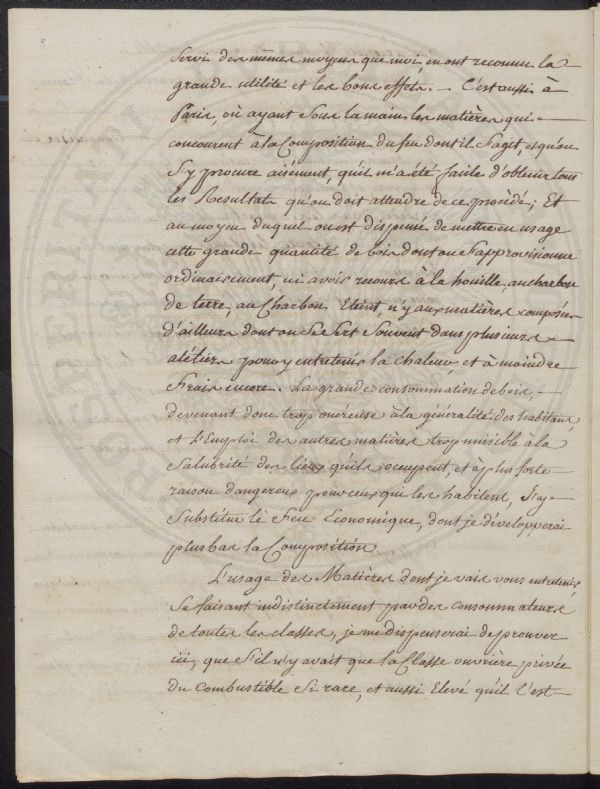 Servi des mêmes moyens que moi, en ont reconnu la
grande utilité et les bons effets. — C'est aussi à
Paris, où ayant sous la main les matières qui
concourent à la Composition du feu dont il s'agit, et qu'on
s'y procure aisément, qu'il m'a été facile d'obtenir tous
les Resultats qu'on doit attendre de ce procédé; Et
au moyen duquel on est dispensé de mettre en usage
cette grande quantité de bois dont on s'approvisionne
ordinairement, ni avoir recours à la houille, au charbon
de terre, au Charbon Eteint, n'y aux matières composées
d'ailleurs dont on se sert souvent dans plusieurs
atéliers pour y entretenir la chaleur, et à moindre
frais encore. La grande consommation de bois,
devenant donc trop onéreuse à la généralité des habitans
et L'Emploi des autres matières trop nuisible à la
Salubrité des lieux qu'ils occupent, et à plus forte
raison dangereux pour ceux qui les habitent, J'y
Substitue le Feu Economique, dont je développerai
plus bas la Composition
L'usage des Matières dont je vais vous entretenir,
se faisant indistinctement par des consommateurs
de toutes les classes, je me dispenserai de prouver
ici, que s'il n'y avait que la Classe ouvrière privée
du combustible si rare, et aussi Elevé qu'il l'est